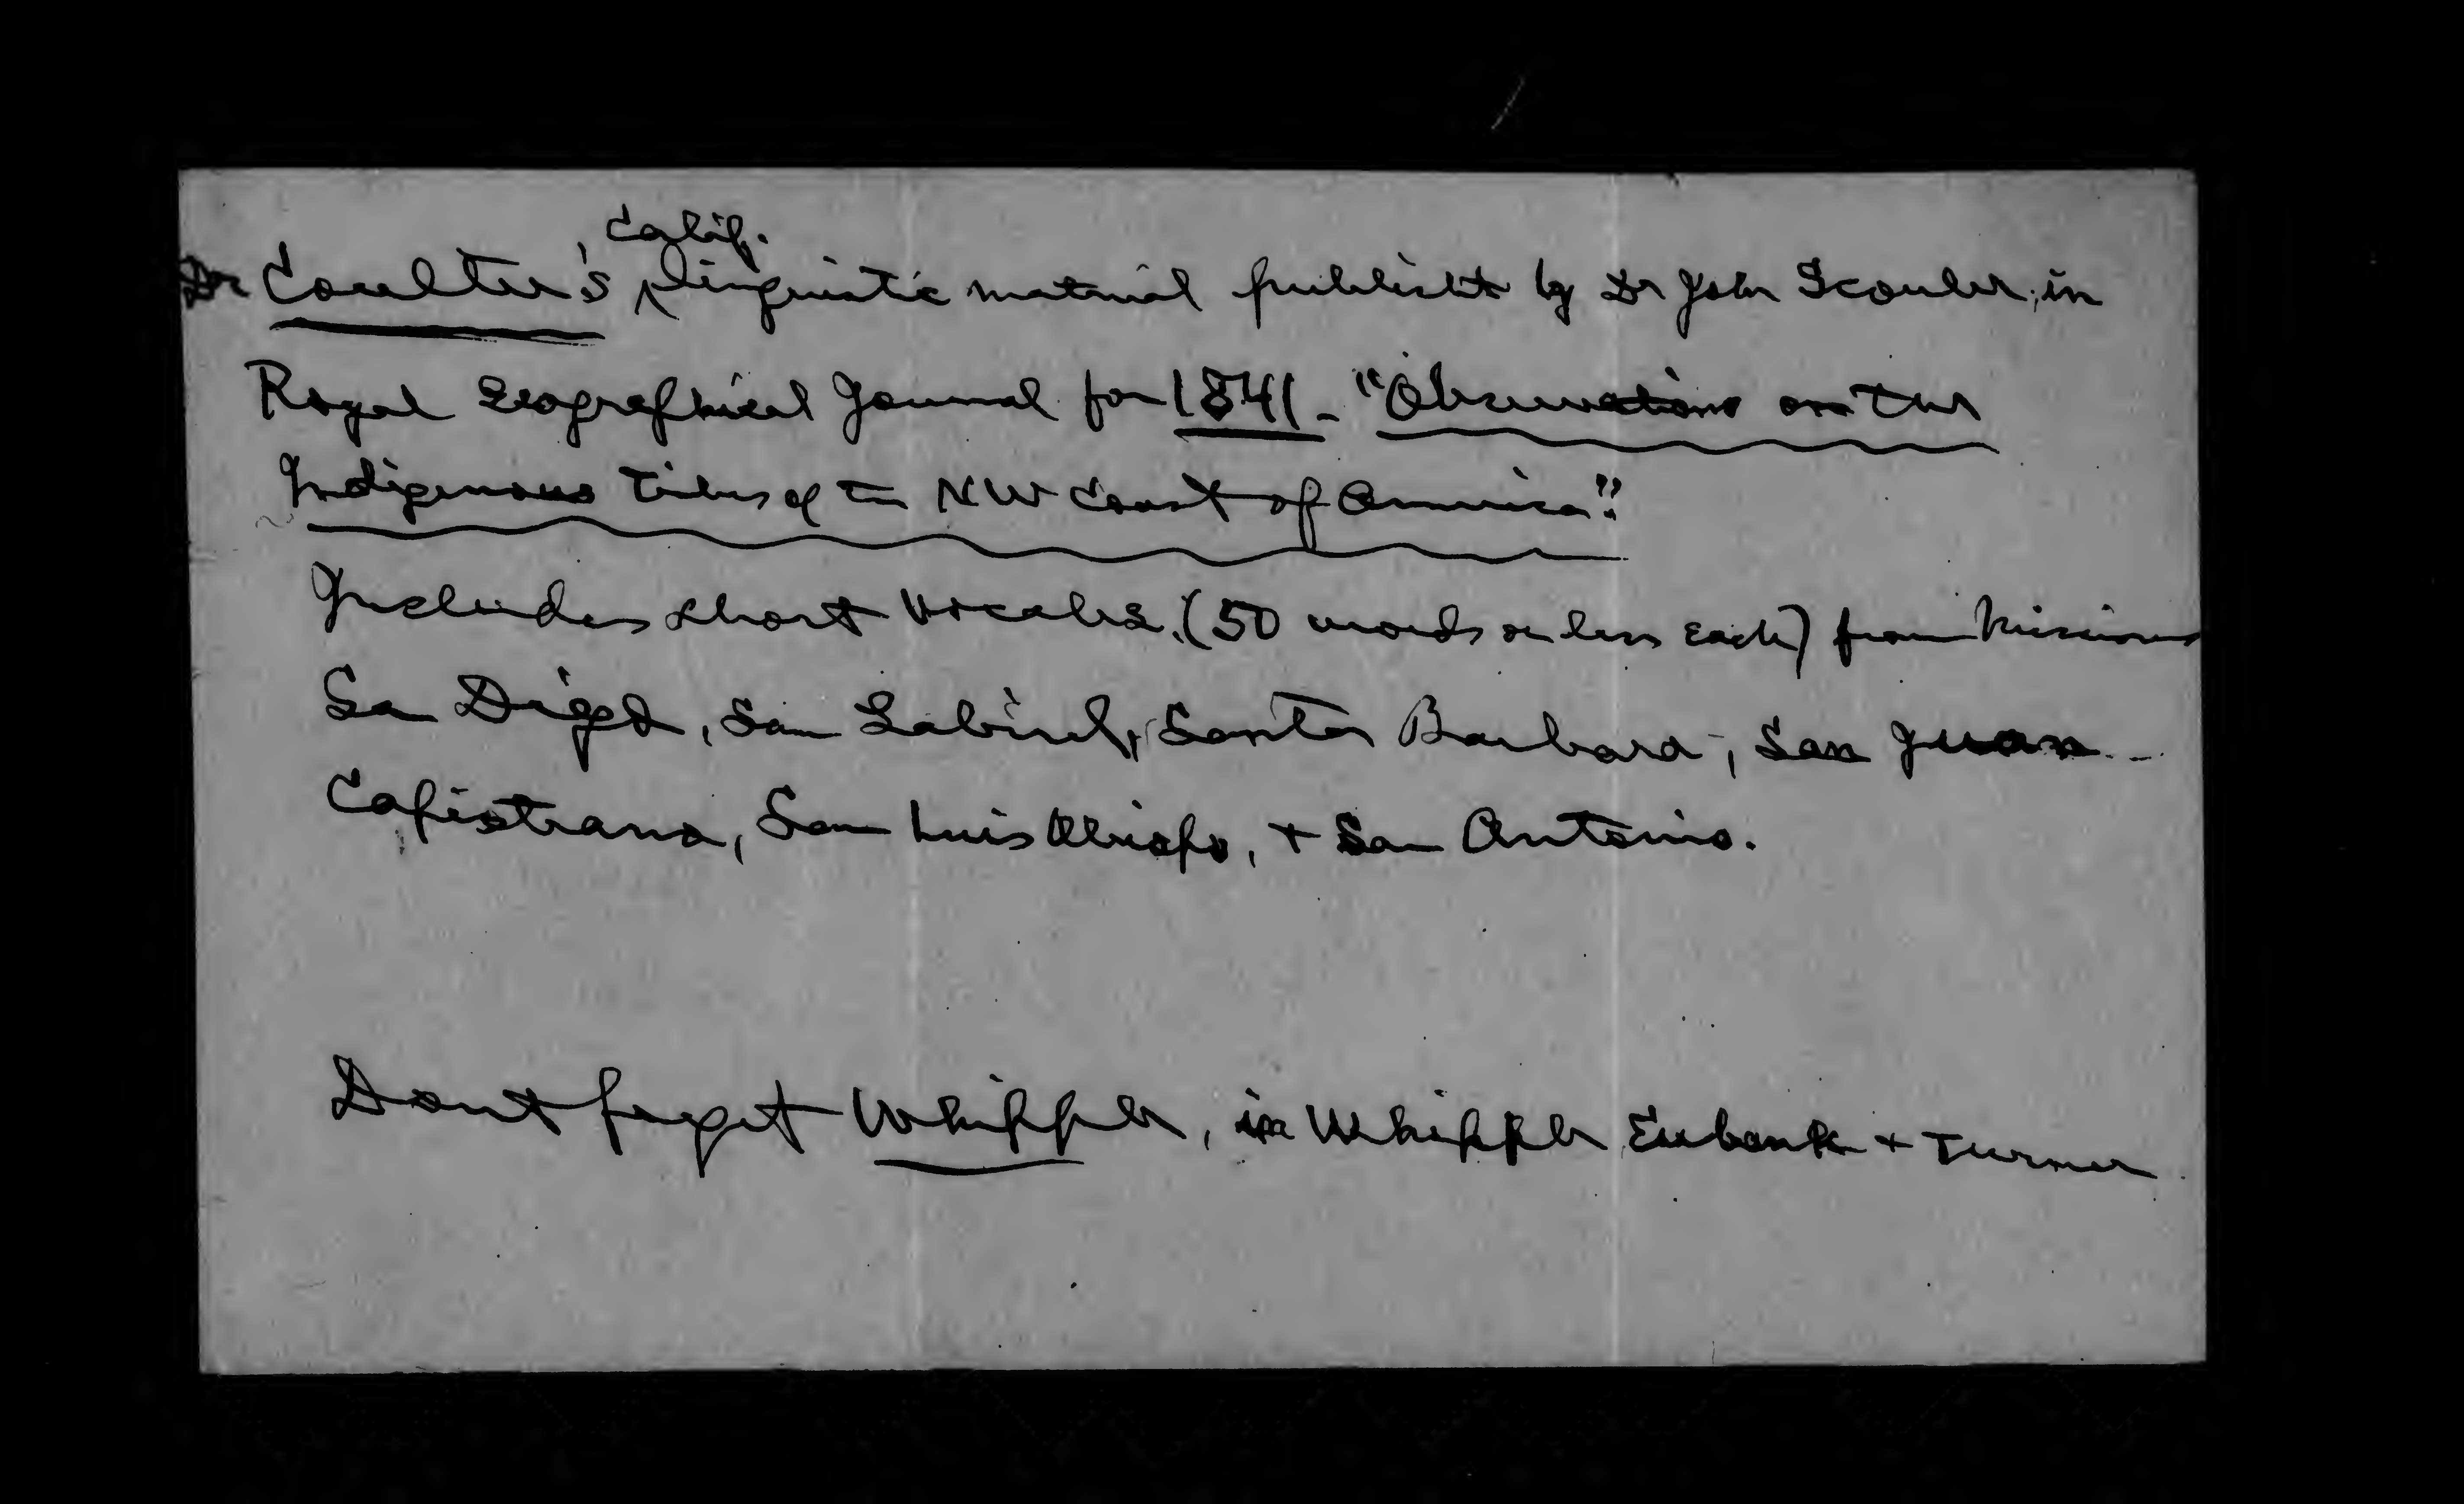 Dr Coulter's Calif. linguistic material publisht by Dr John Scouler, in
Royal Geographical Journal for 1841 - "Observations on the
Indigenous Tribes of the NW Coast of America".
Includes short vocabs. (50 words or less each) from Missions
San Diego, San Gabriel, Santa Barbara, San Juan
Capistrano, San Luis Obispo, + San Antonio.
Dont forget Whipple, in Whipple Eubank + Turner